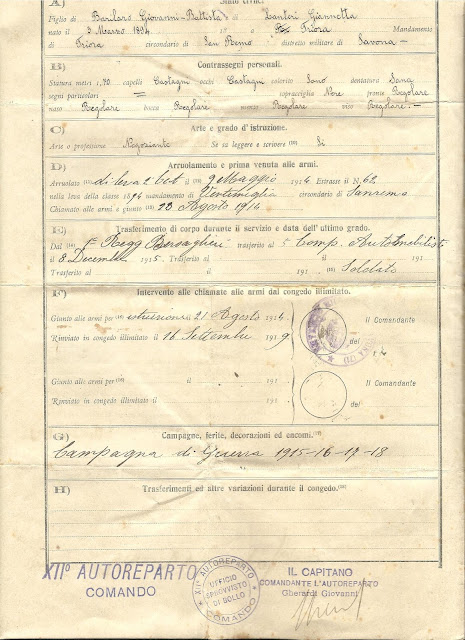 A) Stato civile.
Figlio di Barilaro Giovanni-Battista e di Lanteri Giannetta
nato il 3 Marzo 1894 a Triora Mandamento
di Triora circondario di San Remo distretto militare di Savona
B) Contrassegni personali.
Statura metri 1, 70 capelli Castagni occhi Castagni colorito Sano dentatura Sana
segni particolari = sopracciglia Nere fronte Regolare
naso Regolare bocca Regolare mento Regolare viso Regolare.
C) Arte e grado d'istruzione.
Arte o professione Negoziante Se sa leggere e scrivere Si
D) Arruolamento e prima venuta alle armi.
Arruolato di leva 2 cat il 9 Maggio 1914 Estrasse il N. 62
nella leva della classe 1894 mandamento di Ventimiglia circondario di Sanremo
Chiamato alle armi e giunto 23 Agosto 1914
E) Trasferimento di corpo durante il servizio e data dell'ultimo grado.
Dal 1º Regg Bersaglieri trasferito al 5 Comp. Automobilisti
il 8 Decembre 1915 Trasferito al il 191
Trasferito al il 191 Soldato
F) Intervento alle chiamate alle armi dal congedo illimitato.
Giunto alle armi per istruzione il 21 Agosto 1914. Il Comandante
Rinviato in congedo illimitato il 16 Settembre 1919 del
Giunto alle armi per il 191 Il Comandante
Rinviato in congedo illimitato il 191 del
G) Campagne, ferite, decorazioni ed encomi.
Campagna di Guerra 1915-16-17-18
H) Trasferimenti ed altre variazioni durante il congedo.
XIIº AUTOREPARTO
COMANDO
XIIº AUTOREPARTO
UFFICIO
SPROVVISTO
DI BOLLO
COMANDO
IL CAPITANO
COMANDANTE L'AUTOREPARTO
Gherardi Giovanni